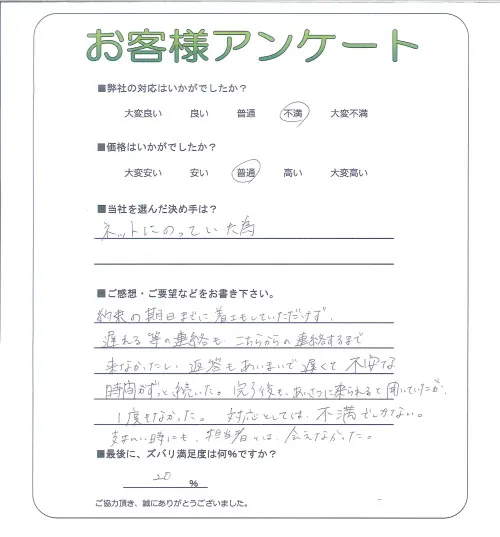 お客様アンケート
■弊社の対応はいかがでしたか？
大変良い 良い 普通 不満 大変不満
■価格はいかがでしたか？
大変安い 安い 普通 高い 大変高い
■当社を選んだ決め手は？
ネットにのっていた為
■ご感想・ご要望などをお書き下さい。
約束の期日までに着工もしていただけず、
遅れる等の連絡も、こちらからの連絡するまで
来なかったし、返答もあいまいで遅くて不安な
時間がずっと続いた。完了後も、あいさつに来られると聞いていたが、
1度もなかった。対応としては、不満でしかない。
支払い時にも、担当者とは、会えなかった。
■最後に、ズバリ満足度は何％ですか？
20 ％
ご協力頂き、誠にありがとうございました。